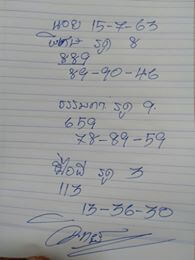 นอย 15-7-63
พิเศษ รูด 8
889
89-90-46
ธรรมดา รูด 9.
659
78-89-59
รูด 3
113
13-36-30